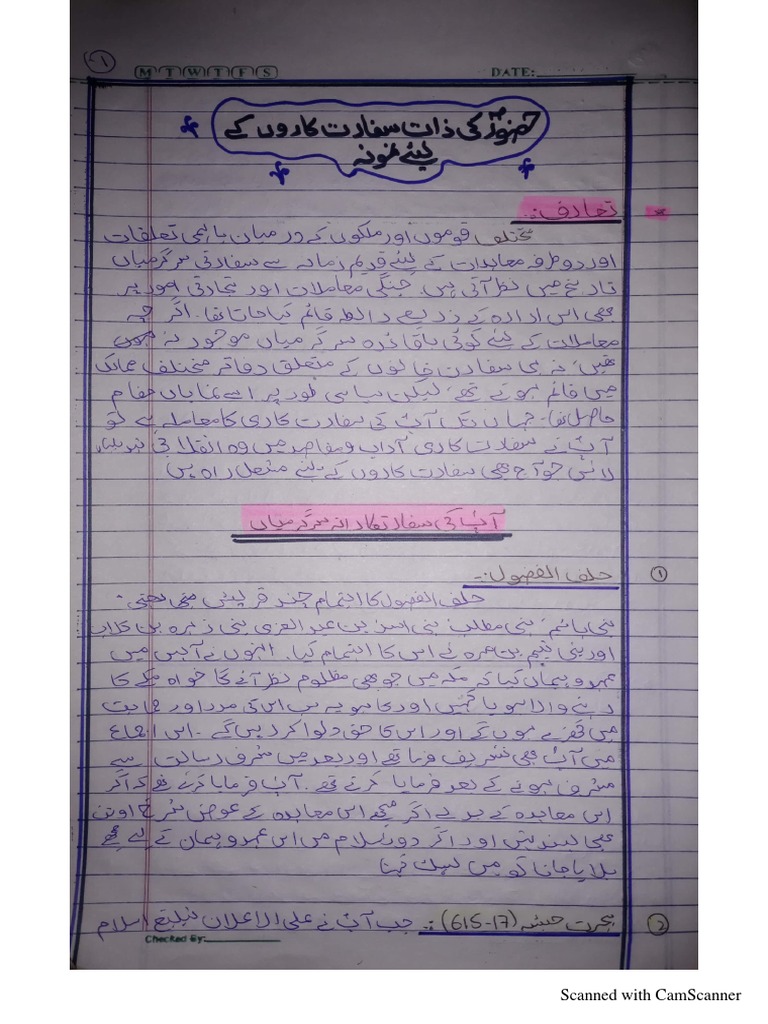 1-
M T W T F S DATE:
حضورؐ کی ذات سفارت کاروں کے
لیئے نمونہ
تعارف:-
مختلف قوموں اور ملکوں کے درمیان باہمی تعلقات
اور دو طرفہ معاہدات کے لیئے قدیم زمانہ سے سفارتی سرگرمیاں
تاریخ میں نظر آتی ہیں۔ جنگی معاملات اور تجارتی امور پر
بھی اس ادارہ کے ذریعے رابطہ قائم کیا جاتا تھا۔ اگر چہ
معاملات کے لیئے کوئی باقاعدہ سرگرمیاں موجود نہ ہوں
تھیں نہ ہی سفارت خانوں کے متعلق دفاتر مختلف ممالک
میں قائم ہوتے تھے، لیکن سیاسی طور پر اسے نمایاں مقام
حاصل تھا۔ جہاں تک آپؐ کی سفارت کاری کا معاملہ ہے تو
آپؐ نے سفارت کاری آداب و مقاصد میں وہ انقلابی تبدیلیاں
لائیں جو آج بھی سفارت کاروں کے لئے مشعل راہ ہیں
آپؐ کی سفارتکارانہ سرگرمیاں
① حلف الفصول:-
حلف الفصول کا اہتمام چند قریشی یعنی
بنی ہاشم، بنی مطلب، بنی اسد بن عبد العزی بنی زہرہ بن کلاب
اور بنی تیم بن مرہ نے اس کا اہتمام کیا۔ انہوں نے آپس میں
عہد و پیمان کیا کہ مکہ میں جو بھی مظلوم نظر آئے گا خواہ مکے کا
رہنے والا ہو یا کہیں اور کا ہو یہ سب اس کی مدد اور حمایت
میں کھڑے ہوں گے اور اس کا حق دلوا کر دیں گے۔ اس اجتماع
میں آپؐ بھی تشریف فرما تھے اور بعد میں شرف رسالت سے
مشرف ہونے کے بعد فرمایا کرتے تھے۔ آپؐ فرمایا کرتے تھے کہ اگر
اس معاہدہ کے بدلے اگر مجھے اس معاہدہ کے عوض سرخ اونٹ
بھی پسند نہیں اور اگر دور اسلام میں اس عہد و پیمان کے لیے مجھے
بلایا جاتا تو میں لبیک کہتا
② ہجرت حبشہ (615-17):- جب آپؐ نے علی الاعلان تبلیغ اسلام
Checked By:
Scanned with CamScanner